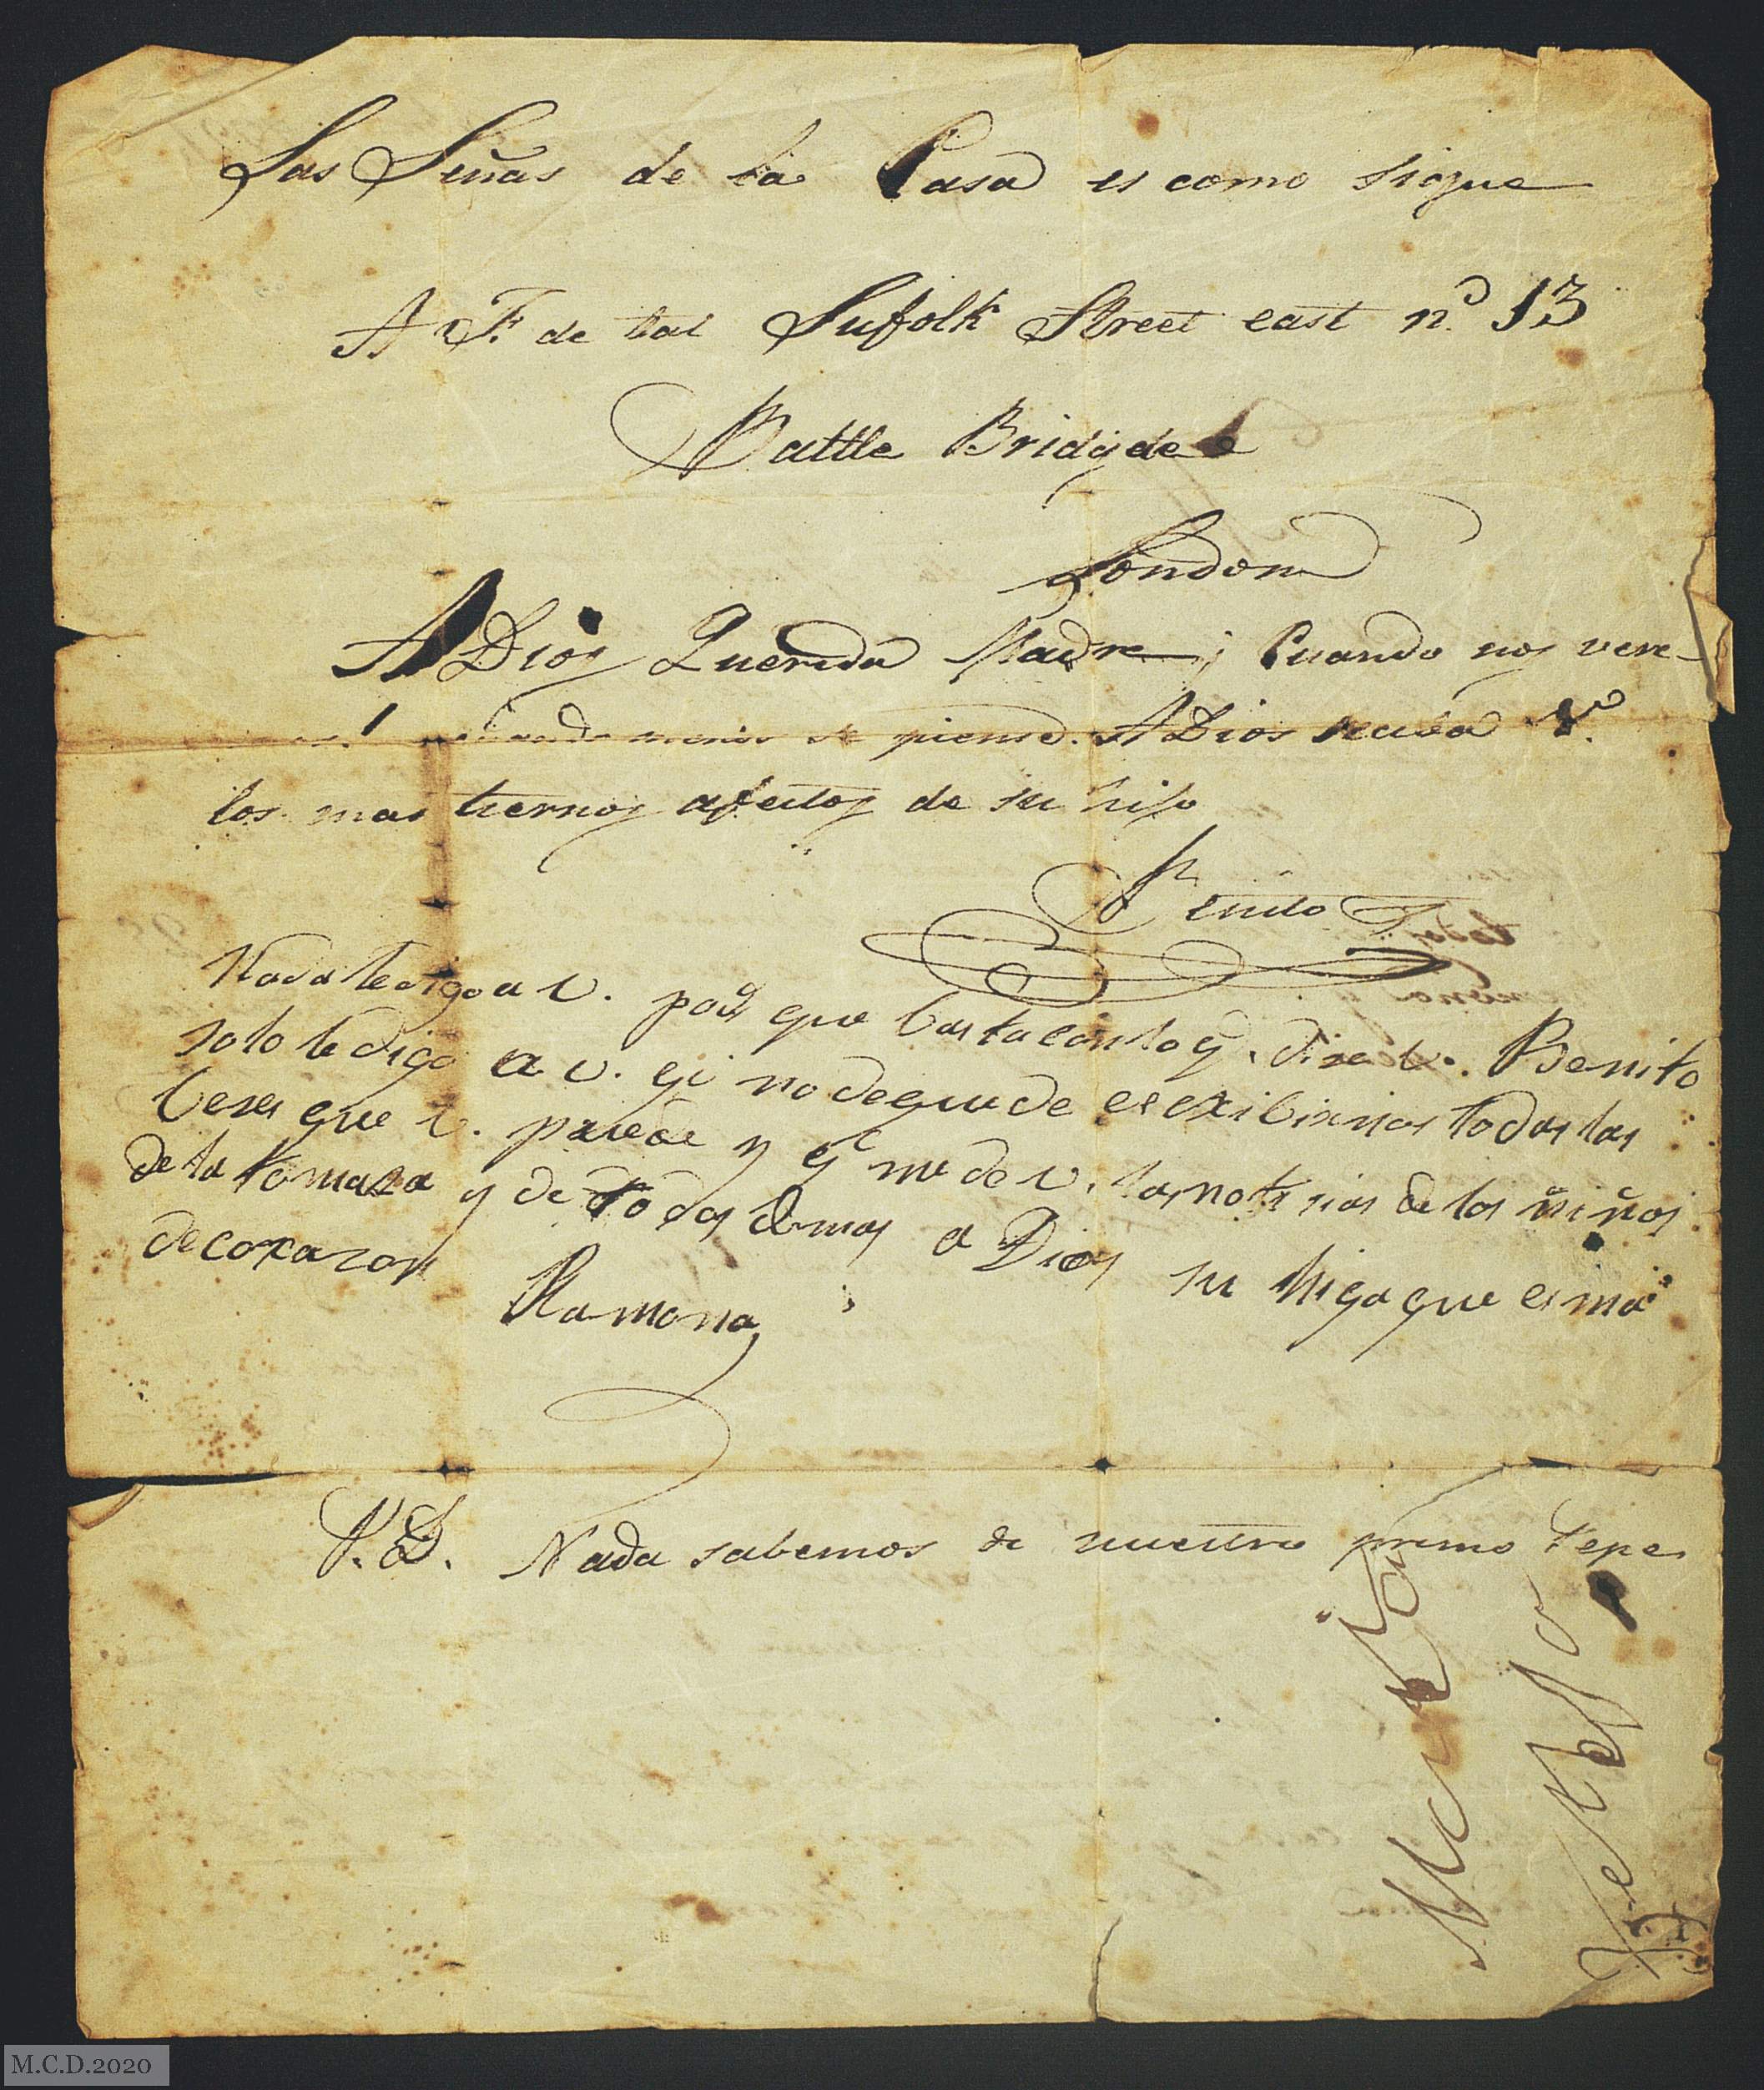 Las Señas de la Casa es como sigue
A F. de tal Sufolk Street east n.º 13
Battle Bridgde
London
A Dios Querida Madre ¡ Cuando nos vere-
cuando menos se piense. A Dios reciba V.
los mas tiernos afectos de su hijo
Benito
Nada le digo a v. por que basta con lo q. dise v. Benito
solo le digo a v. qe no deque de escribirnos todas las
beses que v. puede y qe me de v. las notisias de los niños
de la tomasa y de todos demas a Dios su higa que es ma
de corazon
Ramona
P.D. Nada sabemos de nuestro primo Pepe
M.C.D.2020